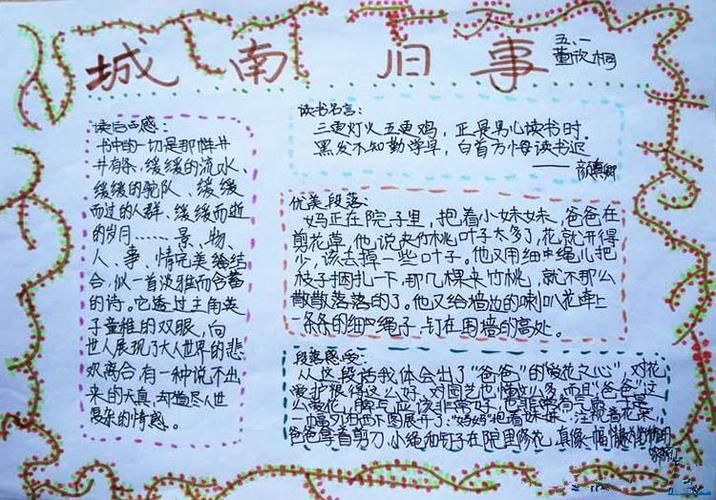 城南旧事
五、一
董欣桐
读后感:
书中的一切是那样井
井有条,缓缓的流水、
缓缓的驼队、缓缓
而过的人群、缓缓而逝
的岁月……景、物、
人、事、情完美结
合,似一首淡雅而含蓄
的诗。它透过主角英
子童稚的双眼,向
世人展现了大人世界的悲
欢离合,有一种说不出
来的天真,却道尽人世
复杂的情感。
读书名言:
三更灯火五更鸡,正是男儿读书时。
黑发不知勤学早,白首方悔读书迟。
——颜真卿
优美段落:
妈正在院子里,抱着小妹妹,爸爸在
剪花草,他说夹竹桃叶子太多了,花就开得
少,该去掉一些叶子。他又用细绳儿把
枝子捆扎一下,那几棵夹竹桃,就不那么
散散落落的了。他又给墙边的喇叭花牵上
一条条的细绳子,钉在围墙的高处。
段落感受:
从这段话我体会出了“爸爸”的“爱花之心”,对花
爱护得这么好,对园艺也懂这么多,而且“爸爸”这
么爱花,脾气应该非常好,也非常有气质,于是
一幅图展开了:“妈妈”抱着妹妹,注视着花草,
爸爸拿着剪刀、小绳和钉子在院里修花,真像一幅